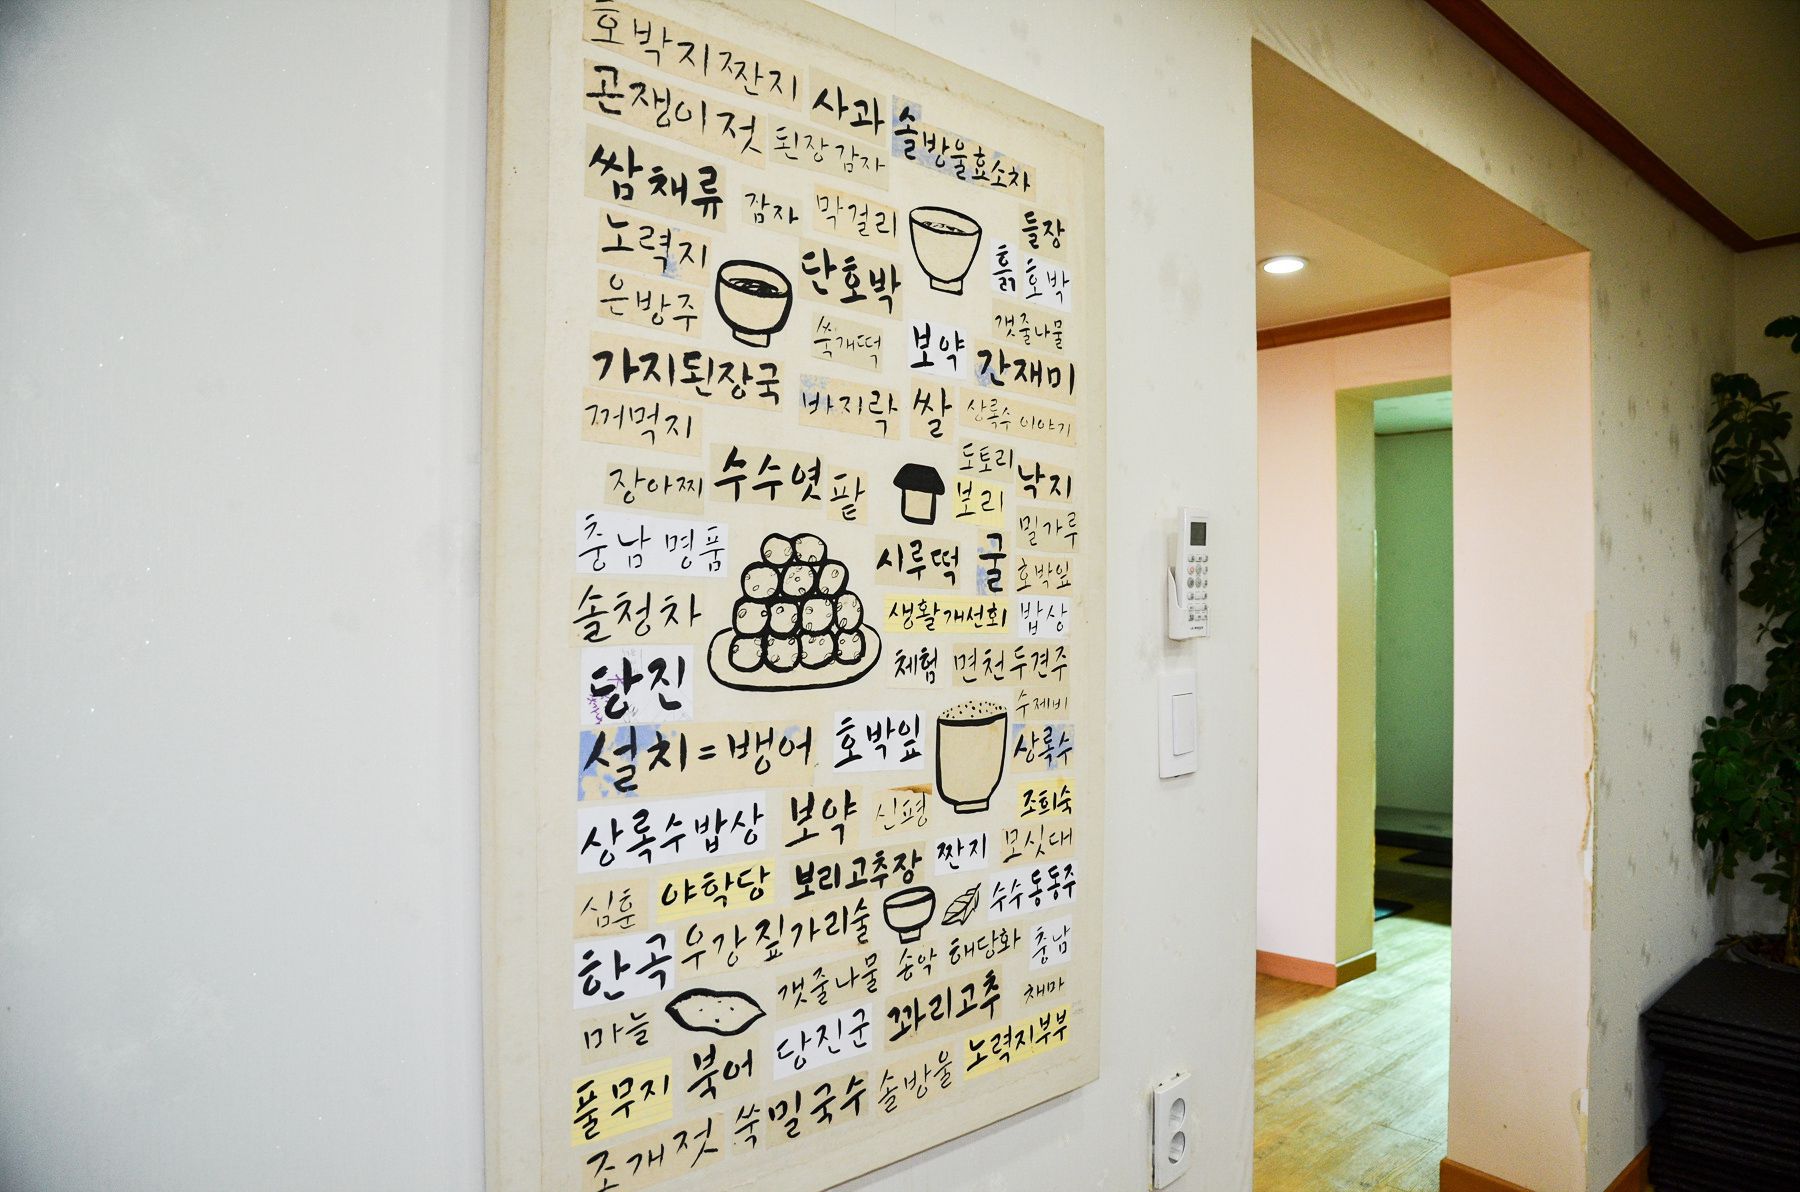 호박지짠지
곤쟁이젓 사과 솔방울효소차
된장감자
쌈채류 감자 막걸리 들장
노력지 단호박 흙 호박
은방주 쑥개떡 보약 갯줄나물
가지된장국 바지락 쌀 간재미
꺼먹지 상록수 이야기
장아찌 수수엿 팥 도토리 낙지
보리 밀가루
충남 명품 시루떡 굴 호박잎
솔청차 생활개선회 밥상
당진 체험 면천두견주
수제비
설치=뱅어 호박잎 상록수
상록수밥상 보약 신평 조희숙
짠지 모싯대
심훈 야학당 보리고추장 수수동동주
한과 우강 짚가리술
갯줄나물 송악 해당화 충남
마늘 당진군 꽈리고추 채마
풀무지 북어 노력지부부
조개젓 쑥밀국수 솔방울